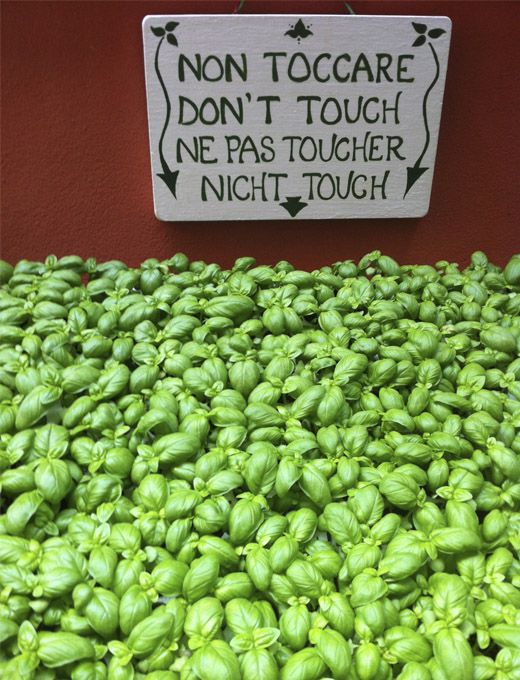 NON TOCCARE
DON'T TOUCH
NE PAS TOUCHER
NICHT TOUGH